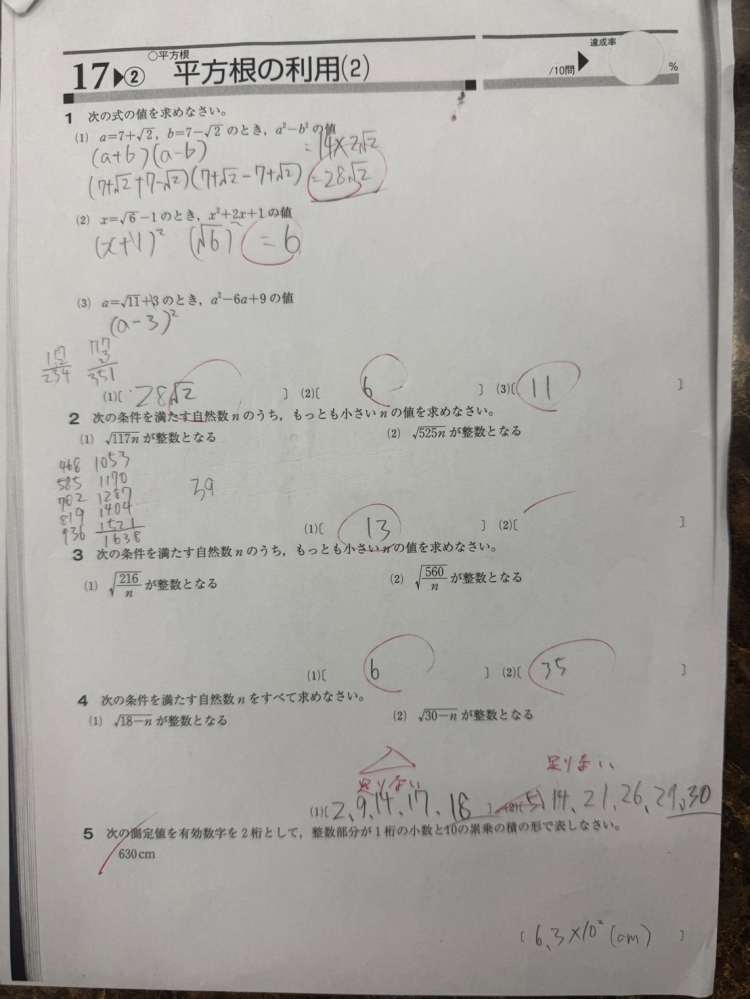 ○平方根
17▶② 平方根の利用(2)
達成率
/10問▶ %
1 次の式の値を求めなさい。
(1) a=7+√2, b=7−√2 のとき, a²−b² の値
(a+b)(a-b) =14×2√2
(7+√2+7-√2)(7+√2-7+√2) =28√2
(2) x=√6−1のとき, x²+2x+1の値
(x+1)² (√6)² =6
(3) a=√11+3のとき, a²−6a+9の値
(a-3)²
117
2
234
117
3
351
(1)[ 28√2 ] (2)[ 6 ] (3)[ 11 ]
2 次の条件を満たす自然数nのうち, もっとも小さいnの値を求めなさい。
(1) √117n が整数となる (2) √525n が整数となる
468 1053
585 1170
702 1287
819 1404
936 1521
1638
39
(1)[ 13 ] (2)[ ]
3 次の条件を満たす自然数nのうち, もっとも小さいnの値を求めなさい。
(1) √216/n が整数となる (2) √560/n が整数となる
(1)[ 6 ] (2)[ 35 ]
4 次の条件を満たす自然数nをすべて求めなさい。
(1) √18−n が整数となる (2) √30−n が整数となる
足りない 足りない
(1)[ 2, 9, 14, 17, 18 ] (2)[ 5, 14, 21, 26, 29, 30
5 次の測定値を有効数字を2桁として, 整数部分が1桁の小数と10の累乗の積の形で表しなさい。
630cm
[ 6.3×10² (cm) ]